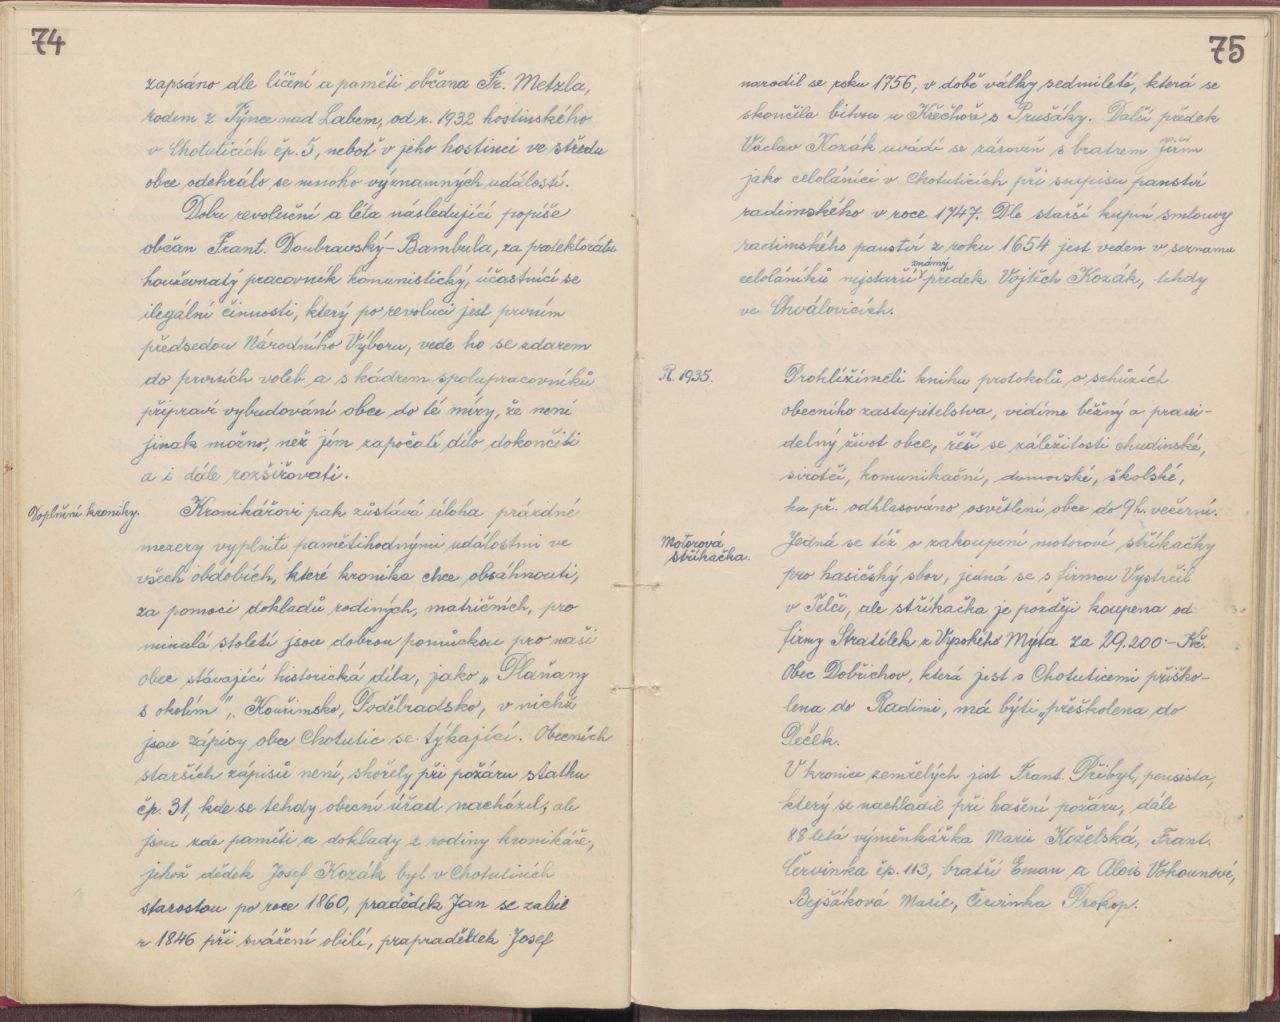 74
zapsáno dle líčení a paměti občana Fr. Metzla,
rodem z Týnce nad Labem, od r. 1932 hostinského
v Chotuticích čp. 5, neboť v jeho hostinci ve středu
obce odehrálo se mnoho významných událostí.
Dobu revoluční a léta následující popíše
občan Frant. Doubravský-Bambula, za protektorátu
houževnatý pracovník komunistický, účastnící se
ilegální činnosti, který po revoluci jest prvním
předsedou Národního Výboru, vede ho se zdarem
do prvních voleb a s kádrem spolupracovníků
připraví vybudování obce do té míry, že není
jinak možno, než jím započaté dílo dokončiti
a i dále rozšiřovati.
Doplnění kroniky.
Kronikářovi pak zůstává úloha prázdné
mezery vyplniti pamětihodnými událostmi ve
všech obdobích, které kronika chce obsáhnouti,
za pomoci dokladů rodiných, matričních, pro
minulá století jsou dobrou pomůckou pro naši
obec stávající historická díla, jako „Plaňany
s okolím“, Kouřimsko, Poděbradsko, v nichž
jsou zápisy obce Chotutic se týkající. Obecních
starších zápisů není, shořely při požáru statku
čp. 31, kde se tehdy obecní úřad nacházel, ale
jsou zde paměti a doklady z rodiny kronikáře,
jehož dědek Josef Kozák byl v Chotuticích
starostou po roce 1860, pradědek Jan se zabil
r 1846 při svážení obilí, prapradědek Josef
75
narodil se roku 1756, v době války sedmileté, která se
skončila bitvou u Křečhoře s Prušáky. Další předek
Václav Kozák uvádí se zároveň s bratrem Jiřím
jako celoláníci v Chotuticích při soupisu panství
radimského v roce 1747. Dle starší kupní smlouvy
radimského panství z roku 1654 jest veden v seznamu
celoláníků nejstarší známý předek Vojtěch Kozák, tehdy
ve Chválovicích.
R. 1935.
Prohlížíme-li knihu protokolů o schůzích
obecního zastupitelstva, vidíme běžný a pravi-
delný život obce, řeší se záležitosti chudinské,
sirotčí, komunikační, domovské, školské,
ku př. odhlasováno osvětlení obce do 9h. večerní.
Motorová
stříkačka.
Jedná se též o zakoupení motorové stříkačky
pro hasičský sbor, jedná se s firmou Vystrčil
v Telči, ale stříkačka je později koupena od
firmy Stratílek z Vysokého Mýta za 29.200·- Kč.
Obec Dobřichov, která jest s Chotuticemi přiško-
lena do Radimi, má býti „přeškolena do
Peček.
V kronice zemřelých jest Frant. Přibyl, pensista,
který se nachladil při hašení požáru, dále
88 letá výměnkářka Marie Koželská, Frant.
Červinka čp. 113, bratří Eman a Alois Vokounové,
Bejšáková Marie, Červinka Prokop.